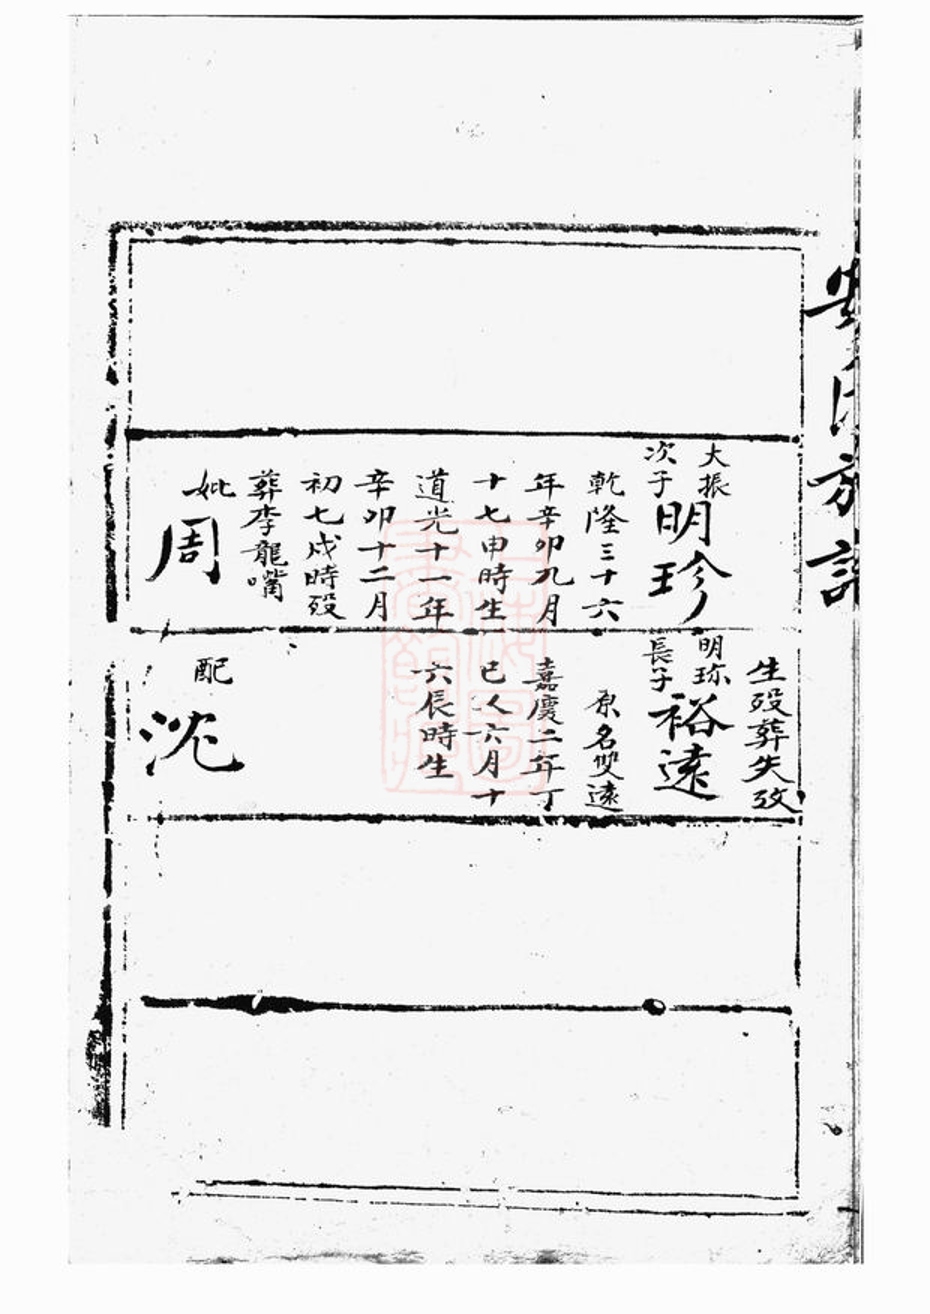 氏族譜
大振
次子
明珍
乾隆三十六
年辛卯九月
十七申時生
道光十一年
辛卯十二月
初七戌時殁
葬李龍嘴
妣周
生殁葬失攷
明珎
長子
裕遠
原名雙遠
嘉慶二年丁
巳人六月十
六辰時生
配沈
上海圖
書館藏